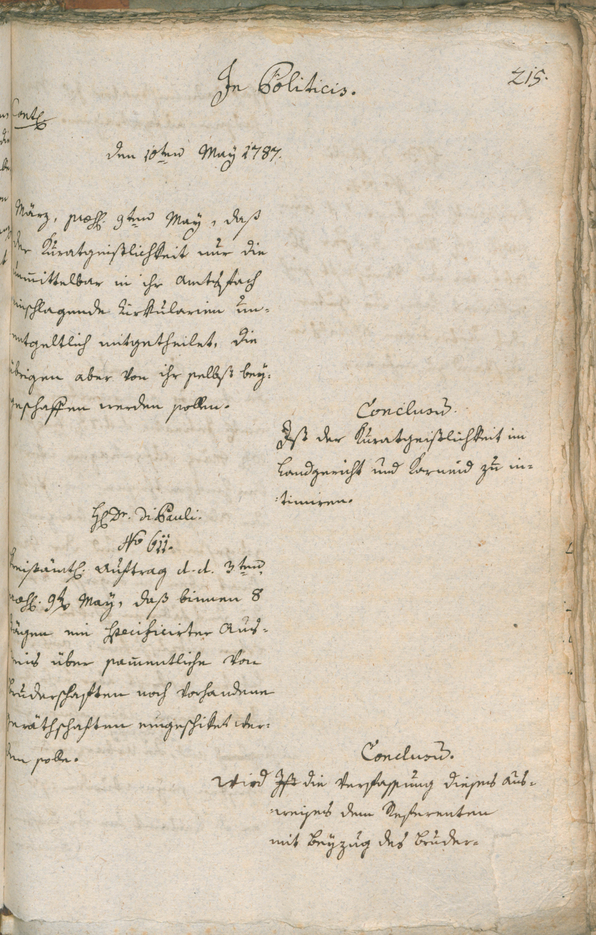 In Politicis.
215.
den 10ten May 1787.
März, præs. 9ten May, daß
der Kuratgeistlichkeit nur die
unmittelbar in ihr Amtsfach
einschlagende Zirkularien un-
entgeltlich mitgetheilet, die
übrigen aber von ihr selbst bey-
geschaffen werden sollen.
Conclusum.
Ist der Kuratgeistlichkeit im
Landgericht und Karneid zu in-
timiren.
H. Dr. di Pauli.
No 611.
Kreisämtl. Auftrag d. d. 3ten
præs. 9ten May, daß binnen 8
Tägen ein specificirter Aus-
weis über sammentliche von
Bruderschaften noch vorhandene
Geräthschaften eingeschiket wer-
den solle.
Conclusum.
wird die Verfassung dieses Aus-
weises dem Referenten
mit Beyzug des Bruder-